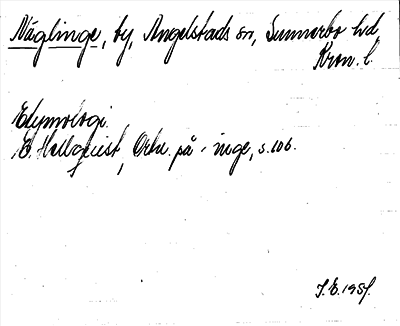 Näglinge, by, Angelstads sn, Sunnerbo hd
Kron. l.
Etymologi.
E. Hellquist, Ortn. på -inge, s. 106.
J. E. 1951.